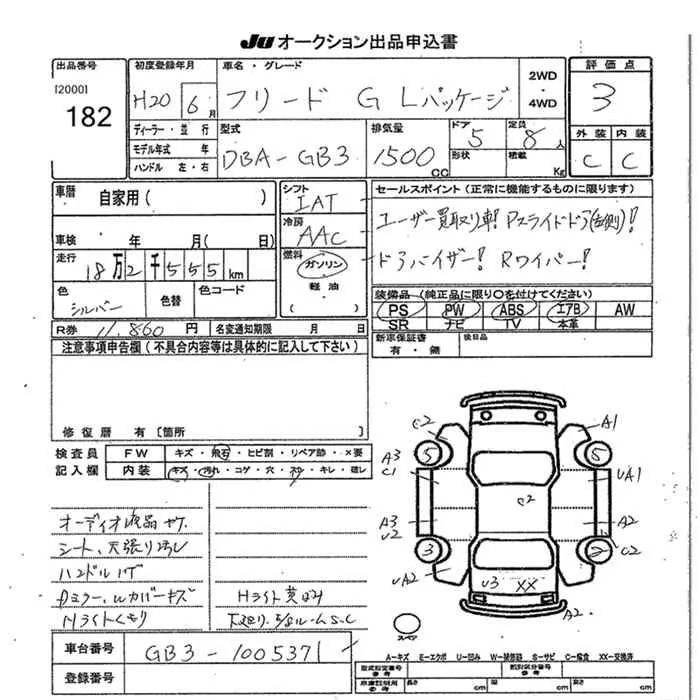 JU オークション出品申込書
出品番号
[2000]
182
初度登録年月
H20 6月
車名・グレード
フリード G Lパッケージ
2WD
・
4WD
評価点
3
外装 内装
C C
ディーラー・並行
モデル年式 年
ハンドル 左・右
型式
DBA-GB3
排気量
1500 CC
ドア
5
形状
定員
8人
積載
Kg
車歴
自家用( )
車検 年 月( 日)
走行
18万2千555km
色
シルバー
色替
色コード
R券 11,860円
名変通知期限 月 日
シフト
IAT
冷房
AAC
燃料
ガソリン
・
軽油
( )
セールスポイント(正常に機能するものに限ります)
ユーザー買取り車! Pスライドドア(右側)!
ドアバイザー! Rワイパー!
装備品 (純正品に限り○を付けてください)
PS PW ABS エアB AW
SR ナビ TV 本革
新車保証書
有・無
後日品
注意事項申告欄(不具合内容等は具体的に記入して下さい)
修復歴 有〔箇所
検査員
記入欄
FW キズ・飛石・ヒビ割・リペア跡・×要
内装 キズ・汚れ・コゲ・穴・スリ・キレ・破レ
オーディオ液晶ヤケ
シート、天張り汚レ
ハンドルハゲ
Hライトくもり
Hライト黄ばみ
車台番号
GB3-1005371
登録番号
C2
A1
A3
C1
5
5
UA1
C2
A3
U2
A2
3
2
C2
UA2
U3
XX
A2
スペア
A-キズ E-エクボ U-凹み W-補修跡 S-サビ C-腐食 XX-交換済
型式指定番号
参考
類別区分番号
参考
車庫証明用
参考
長さ cm
幅 cm
高さ cm